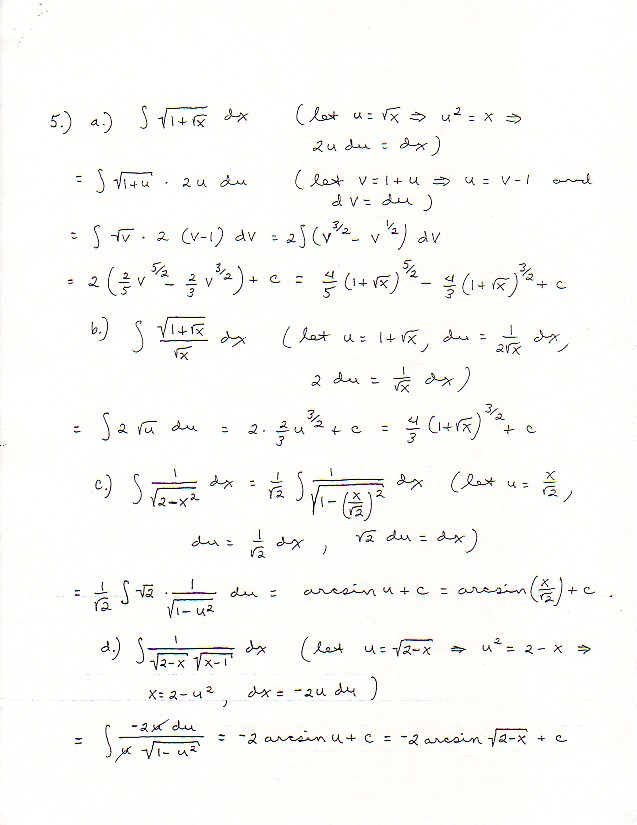 5.) a.) ∫ √(1+√x) dx (let u = √x ⇒ u² = x ⇒
2u du = dx)
= ∫ √(1+u) · 2u du (let v = 1+u ⇒ u = v-1 and
dv = du)
= ∫ √v · 2 (v-1) dv = 2∫(v^(3/2) - v^(1/2)) dv
= 2(2/5 v^(5/2) - 2/3 v^(3/2)) + c = 4/5 (1+√x)^(5/2) - 4/3 (1+√x)^(3/2) + c
b.) ∫ √(1+√x)/√x dx (let u = 1+√x, du = 1/(2√x) dx,
2 du = 1/√x dx)
= ∫ 2 √u du = 2 · 2/3 u^(3/2) + c = 4/3 (1+√x)^(3/2) + c
c.) ∫ 1/√(2-x²) dx = 1/√2 ∫ 1/√(1-(x/√2)²) dx (let u = x/√2,
du = 1/√2 dx, √2 du = dx)
= 1/√2 ∫ √2 · 1/√(1-u²) du = arcsin u + c = arcsin(x/√2) + c.
d.) ∫ 1/(√(2-x) √(x-1)) dx (let u = √(2-x) ⇒ u² = 2-x ⇒
x = 2-u², dx = -2u du)
= ∫ -2u du/(u √(1-u²)) = -2 arcsin u + c = -2 arcsin √(2-x) + c